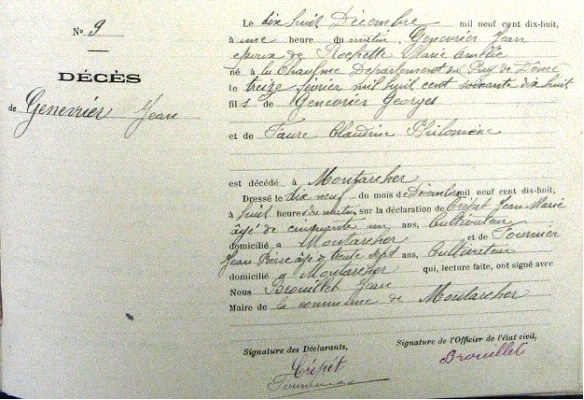 N° 9
DÉCÈS
de Genevrier Jean
Le dix huit Décembre mil neuf cent dix-huit,
à une heure du matin, Genevrier Jean
époux de Rochette Marie Amélie
né à la Chaulme Département du Puy de Dôme
le treize février mil huit cent soixante dix huit
fils de Genevrier Georges
et de Faure Claudine Philomène
est décédé à Montarcher
Dressé le dix neuf du mois de Décembre mil neuf cent dix-huit,
à huit heures du matin, sur la déclaration de Crépet Jean Marie
âgé de cinquante un ans, Cultivateur
domicilié à Montarcher et de Fournier
Jean Pierre âgé de trente sept ans, Cultivateur
domicilié à Montarcher qui, lecture faite, ont signé avec
Nous Brouillet Jean
Maire de la commune de Montarcher
Signature des Déclarants, Signature de l'Officier de l'état civil,
Crépet Brouillet
Fournier